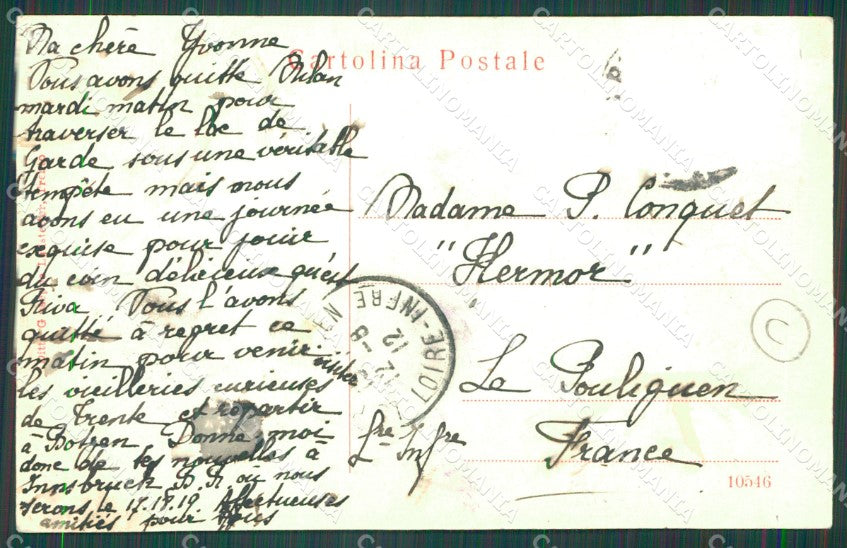 Ma chère Yvonne
Nous avons quitté Milan
mardi matin pour
traverser le lac de
Garde sous une véritable
tempête mais nous
avons eu une journée
exquise pour jouir
du coin délicieux qu'est
Riva. Nous l'avons
quitté à regret ce
matin pour venir visiter
les vieilleries curieuses
de Trente et repartir
à Botzen Donne moi
donc de tes nouvelles à
Innsbruck P. R. où nous
serons le 17.18.19 Affectueuses
amitiés pour tous
Cartolina Postale
Madame P. Conquet
"Kermor"
Le Pouliguen
Lre Infre
France
LOIRE-INFRE
12
12 -8
10546
C
CARTOLINOMANIA